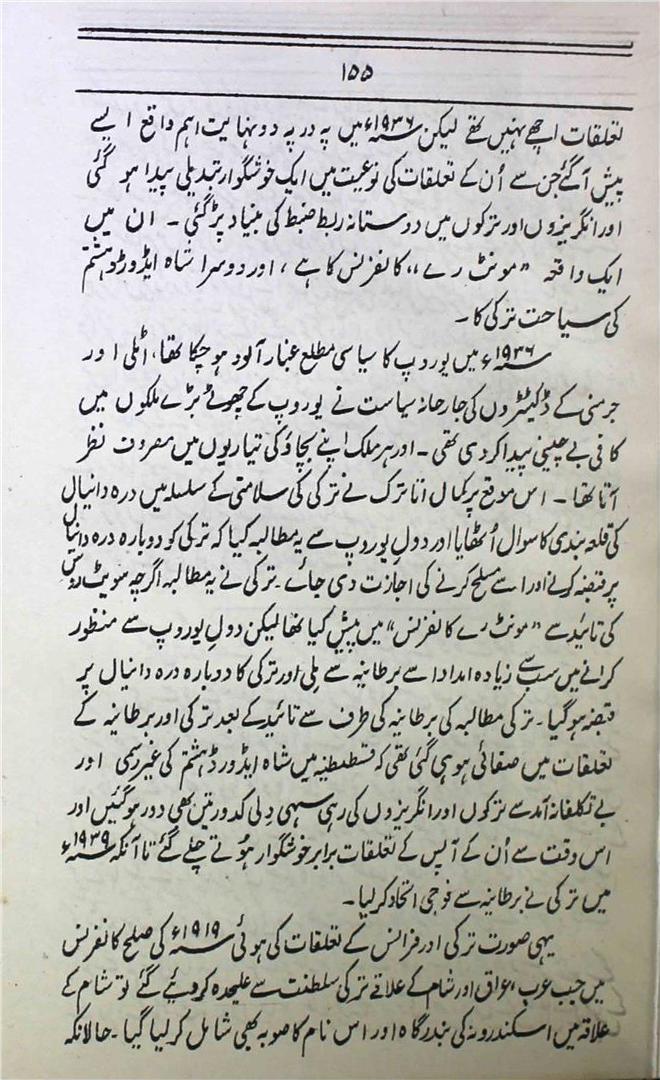 ۱۵۵
تعلقات اچھے نہیں تھے لیکن ۱۹۳۶ء میں پہ در پہ دو نہایت اہم واقع ایسے
پیش آگئے جن سے اُن کے تعلقات کی نوعیت میں ایک خوشگوار تبدیلی پیدا ہو گئی
اور انگریزوں اور ترکوں میں دوستانہ ربط ضبط کی بنیاد پڑ گئی ۔ ان میں
ایک واقعہ ”مونٹ رے“ کانفرنس کا ہے ، اور دوسرا شاہ ایڈورڈ ہشتم
کی سیاحت ترکی کا ۔
۱۹۳۶ء میں یوروپ کا سیاسی مطلع غبار آلود ہو چکا تھا، اٹلی اور
جرمنی کے ڈکٹیٹروں کی جارحانہ سیاست نے یوروپ کے چھوٹے بڑے ملکوں میں
کافی بے چینی پیدا کر دی تھی ۔ اور ہر ملک اپنے بچاؤ کی تیاریوں میں مصروف نظر
آتا تھا ۔ اس موقع پر کمال اتاترک نے ترکی کی سلامتی کے سلسلہ میں درہ دانیال
کی قلعہ بندی کا سوال اُٹھایا اور دولِ یوروپ سے یہ مطالبہ کیا کہ ترکی کو دوبارہ درہ دانیال
پر قبضہ کرنے اور اسے مسلح کرنے کی اجازت دی جائے ۔ ترکی نے یہ مطالبہ اگرچہ سویٹ روس
کی تائید سے ”مونٹ رے کانفرنس“ میں پیش کیا تھا لیکن دولِ یوروپ سے منظور
کرانے میں سب سے زیادہ امداد اسے برطانیہ سے ملی اور ترکی کا دوبارہ درہ دانیال پر
قبضہ ہو گیا ۔ ترکی مطالبہ کی برطانیہ کی طرف سے تائید کے بعد ترکی اور برطانیہ کے
تعلقات میں صفائی ہو ہی گئی تھی کہ قسطنطنیہ میں شاہ ایڈورڈ ہشتم کی غیر رسمی اور
بے تکلفانہ آمد سے ترکوں اور انگریزوں کی رہی سہی دلی کدورتیں بھی دور ہو گئیں اور
اس وقت سے اُن کے آپس کے تعلقات برابر خوشگوار ہوتے چلے گئے تا آنکہ ۱۹۳۹ء
میں ترکی نے برطانیہ سے فوجی اتحاد کر لیا ۔
یہی صورت ترکی اور فرانس کے تعلقات کی ہوئی ۱۹۱۹ء کی صلح کانفرنس
میں جب عرب، عراق اور شام کے علاقے ترکی سلطنت سے علیحدہ کر دیئے گئے تو شام کے
علاقہ میں اسکندرونہ کی بندرگاہ اور اس نام کا صوبہ بھی شامل کر لیا گیا ۔ حالانکہ